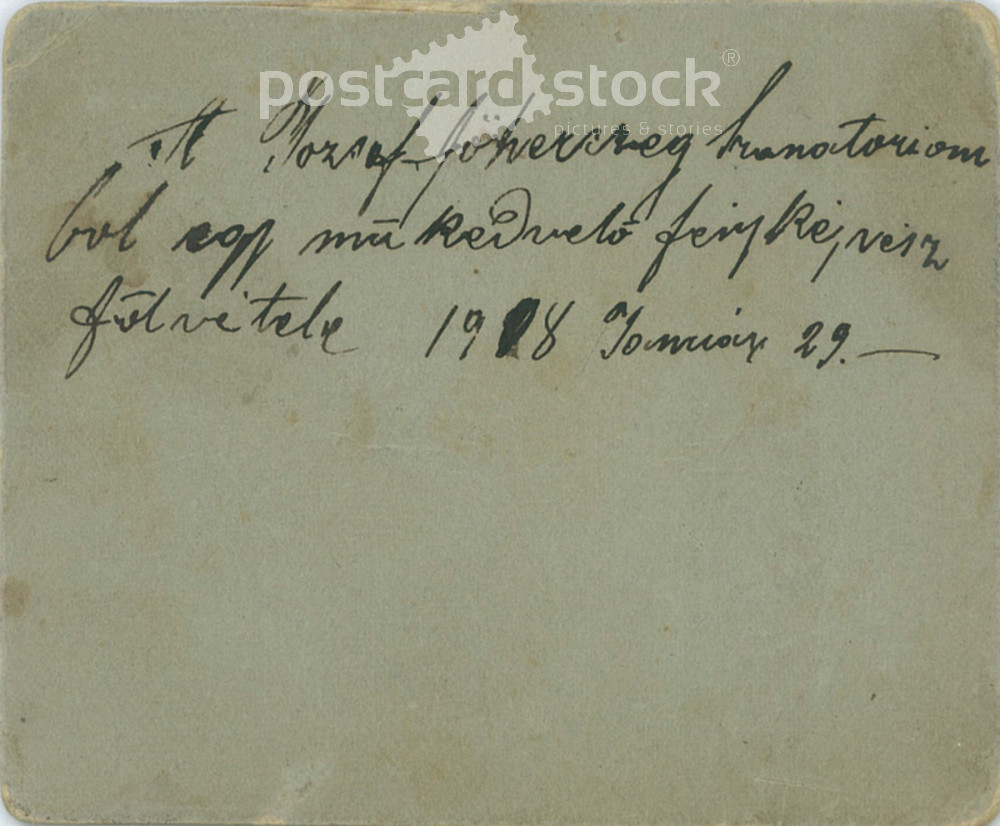 postcard stock®
pictures & stories
A József főherczeg szanatorium
bol egy mű kedvelő fényképész
fölvétele 1918 Január 29. —